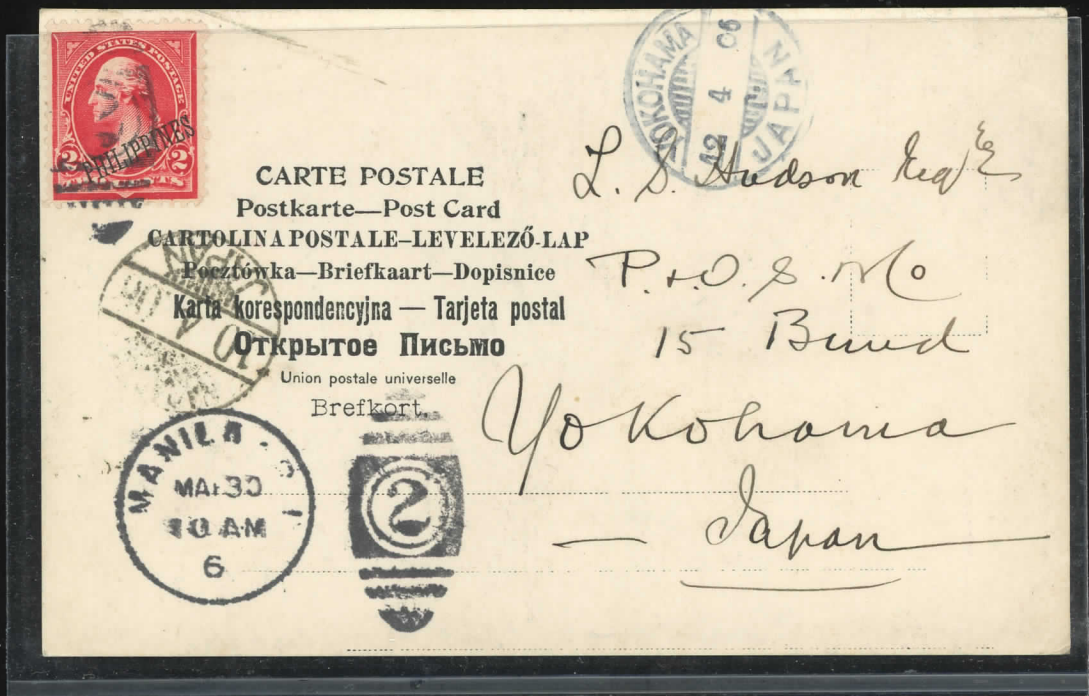 UNITED STATES POSTAGE
PHILIPPINES
2 2
YOKOHAMA
12 4 06
JAPAN
CARTE POSTALE
Postkarte—Post Card
CARTOLINA POSTALE–LEVELEZŐ-LAP
Pocztówka—Briefkaart—Dopisnice
Karta korespondencyjna — Tarjeta postal
Открытое Письмо
Union postale universelle
Brefkort.
L. S. Hudson Esqre
P. & O. S. N. Co
15 Bund
Yokohama
— Japan
JAPAN
10 4
MANILA P I
MAR 30
10 AM
6
2